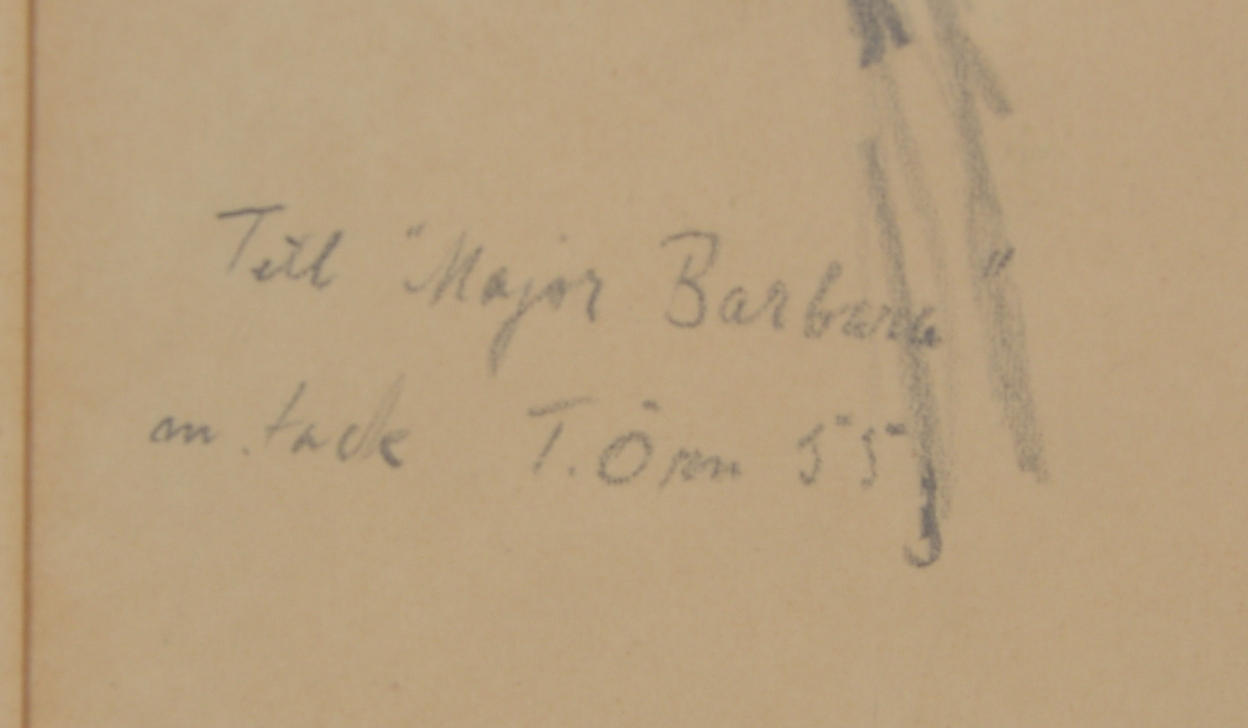 Till "Major Barbara"
m. tack T. Örn 55